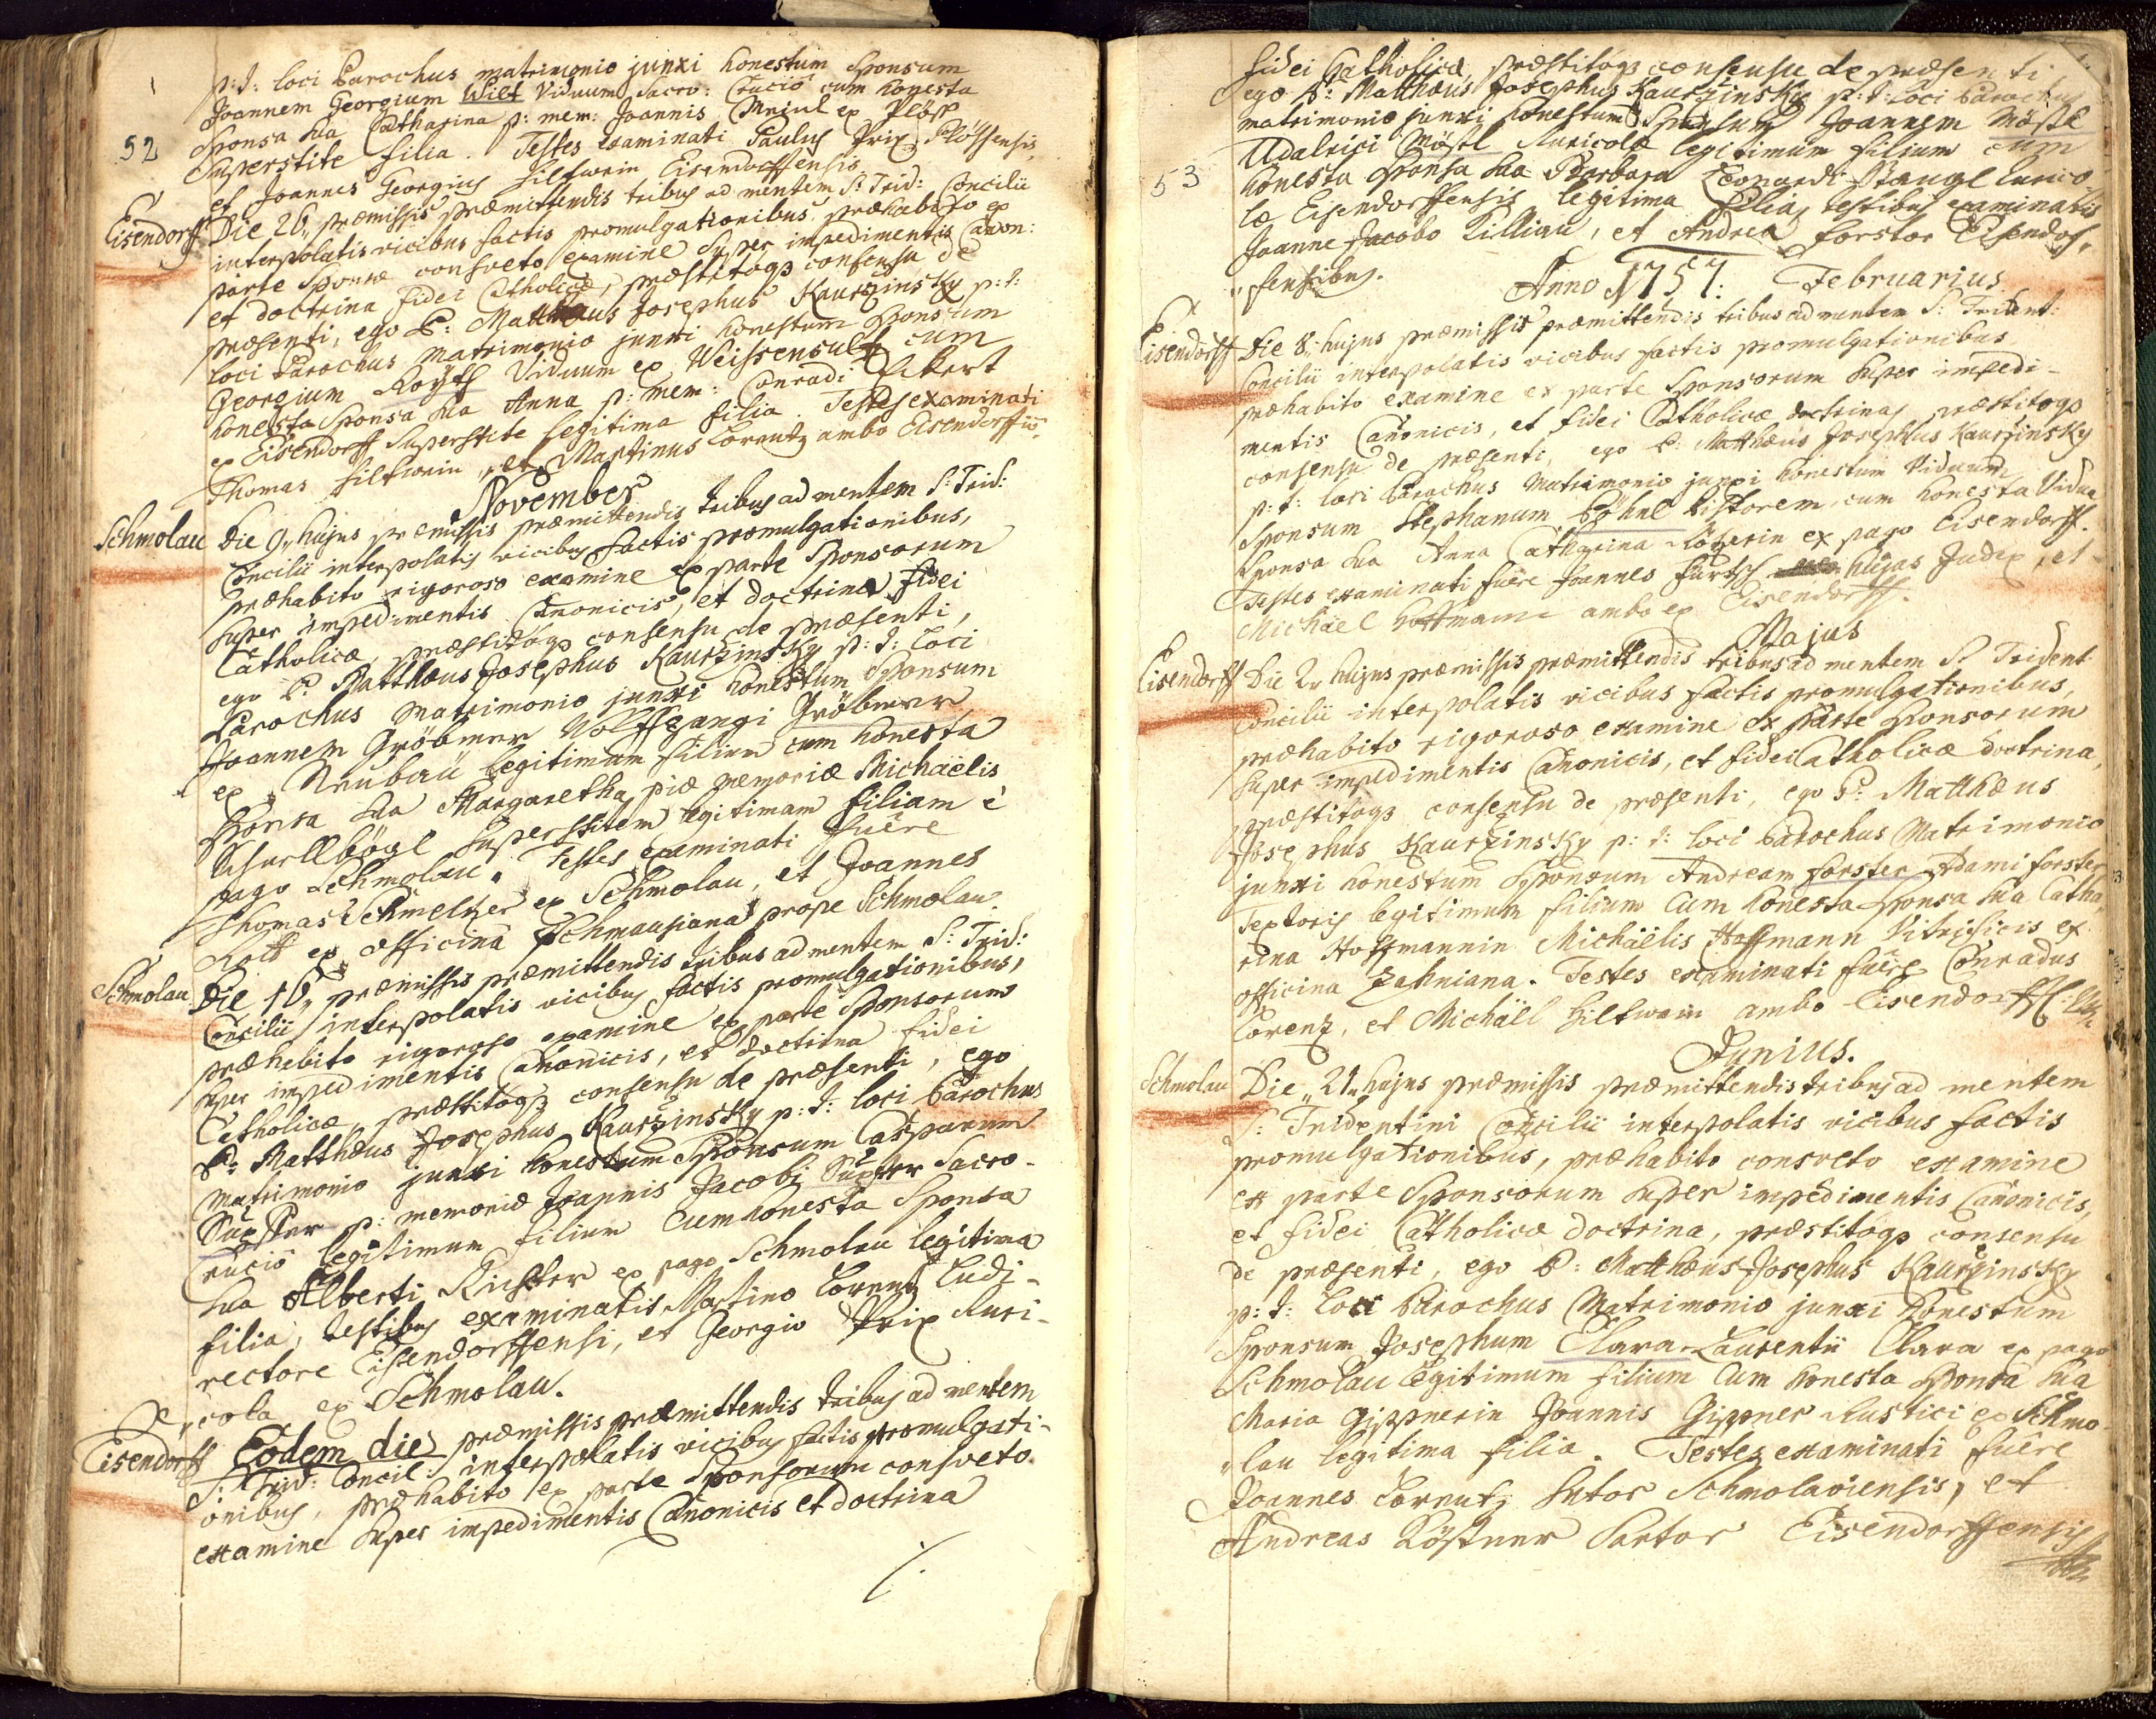 p: t: loci Parochus matrimonio junxi honestum Sponsum
Joannem Georgium Wilt Viduum Sacro: Crucio cum honesta
52
Sponsa sua Catharina p: mem: Joannis ex Plöss
Superstite filia. Testes examinati Paulus Prix Plössensis,
et Joannes Georgius Hiltwein Eisendorffensis.
Eisendorff Die 26" præmissis præmittendis tribus ad mentem S: Trid: Concilii
interpolatis vicibus factis promulgationibus præhabito ex
parte Sponsæ consveto examine super impedimentis Canon:
et doctrina fidei Catholicæ, præstitoq3 consensu de
præsenti, ego P: Matthæus Josephus Kaurzinsky p: t:
loci Parochus Matrimonio junxi honestum Sponsum
Georgium Viduum ex Weissensulz cum
honesta Sponsa sua Anna p: mem: Conradi Eckert
ex Eisendorff Superstite legitima filia. Testes examinati
Thomas Hiltwein, et Martinus Lorentz ambo Eisendorffii.
November
Schmolau Die 9" hujus præmissis præmittendis tribus ad mentem S: Trid:
Concilii interpolatis vicibus factis promulgationibus,
præhabito rigoroso examine ex parte Sponsorum
super impedimentis Canonicis, et doctrina fidei
Catholicæ, præstitoq3 consensu de præsenti,
ego P: Matthæus Josephus Kaurzinsky p: t: loci
Parochus Matrimonio junxi honestum Sponsum
Joannem Gröbner Wolffgangi Gröbner
ex Neubau legitimum filium cum honesta
Sponsa sua Margaretha piæ memoriæ Michaëlis
Schnellbögl superstitem legitimam filiam è
pago Schmolau. Testes examinati fuêre
Thomas Schmeltzer ex Schmolau, et Joannes
Rott ex officina Schmausiana prope Schmolau.
Schmolau Die 16" præmissis præmittendis tribus ad mentem S: Trid:
Concilii interpolatis vicibus factis promulgationibus,
præhabito rigoroso examine ex parte Sponsorum
super impedimentis Canonicis, et doctrina fidei
Catholicæ præstitoq3 consensu de præsenti, ego
P: Matthæus Josephus Kaurzinsky p: t: loci Parochus
Matrimonio junxi honestum Sponsum Casparum
p: memoriæ Joannis Jacobi Sacro-
Crucio legitimum filium cum honesta Sponsa
sua Alberti Richter ex pago Schmolau legitima
filia, testibus examinatis Martino Lorentz Ludi-
rectore Eisendorffensi, et Georgio Prix Ruri-
"cola ex Schmolau.
Eisendorff Eodem die præmissis præmittendis tribus ad mentem
S: Trid: Concil: interpolatis vicibus factis promulgati-
onibus, præhabito ex parte Sponsorum consveto
examine super impedimentis Canonicis et doctrina
./.
fidei Catholicæ, præstitoq3 consensu de præsenti
ego P: Matthæus Josephus Kaurzinsky p: t: loci Parochus
matrimonio junxi honestum Sponsum Joannem Möstl
Udalrici Möstl Ruricolæ legitimum filium cum
53
honesta Sponsa sua Barbara Leonardi Stangl Rurico-
læ Eisendorffensis legitima filia, testibus examinatis
Joanne Jacobo Killian, et Andrea Forster Eisendorf,
"fensibus.
Anno 1757: Februarius
Eisendorff Die 8" hujus præmissis præmittendis tribus ad mentem S: Trident:
Concilii interpolatis vicibus factis promulgationibus,
præhabito examine ex parte Sponsorum super impedi-
mentis Canonicis, et fidei Catholicæ doctrina, præstitoq3
consensu de præsenti, ego P: Matthæus Josephus Kaurzinsky
p: t: loci Parochus Matrimonio junxi honestum Viduum
Sponsum Stephanum Pistorem, cum honesta Vidua
Sponsa sua Anna Catharina ex pago Eisendorff.
Testes examinati fuêre Joannes Fürtsch hujas Judex, et
Michaël Hoffmann ambo ex Eisendorff.
Majus
Eisendorff Die 2" hujus præmissis præmittendis tribus ad mentem S: Trident
Concilii interpolatis vicibus factis promulgationibus,
præhabito rigoroso examine ex parte Sponsorum
super impedimentis Canonicis, et fidei Catholicæ doctrina,
præstitoq3 consensu de præsenti, ego P: Matthæus
Josephus Kaurzinsky p: t: loci Parochus Matrimonio
junxi honestum Sponsum Andream Forster Adami Forster
Textoris legitimum filium cum honesta Sponsa sua Catha-
rina Hoffmannin Michaëlis Hoffmann Vitrificis ex
officina Zahniana. Testes examinati fuêre Conradus
Lorenz, et Michäel Hiltwein ambo Eisendorff.
Junius.
Schmolau Die "21" hujus præmissis præmittendis tribus ad mentem
S: Tridentini Concilii interpolatis vicibus factis
promulgationibus, præhabito consveto examine
ex parte Sponsorum super impedimentis Canonicis,
et fidei Catholicæ doctrina, præstitoq3 consensu
de præsenti, ego P: Matthæus Josephus Kaurzinsky
p: t: loci Parochus Matrimonio junxi honestum
Sponsum Josephum Clara Laurentii Clara ex pago
Schmolau legitimum filium cum honesta Sponsa sua
Maria Gippnerin Joannis Gippner Rustici ex Schmo-
"lau legitima filia. Testes examinati fuêre
Joannes Lorentz Sutor Schmolaviensis, et
Andreas Köstner Sartor Eisendorffensis